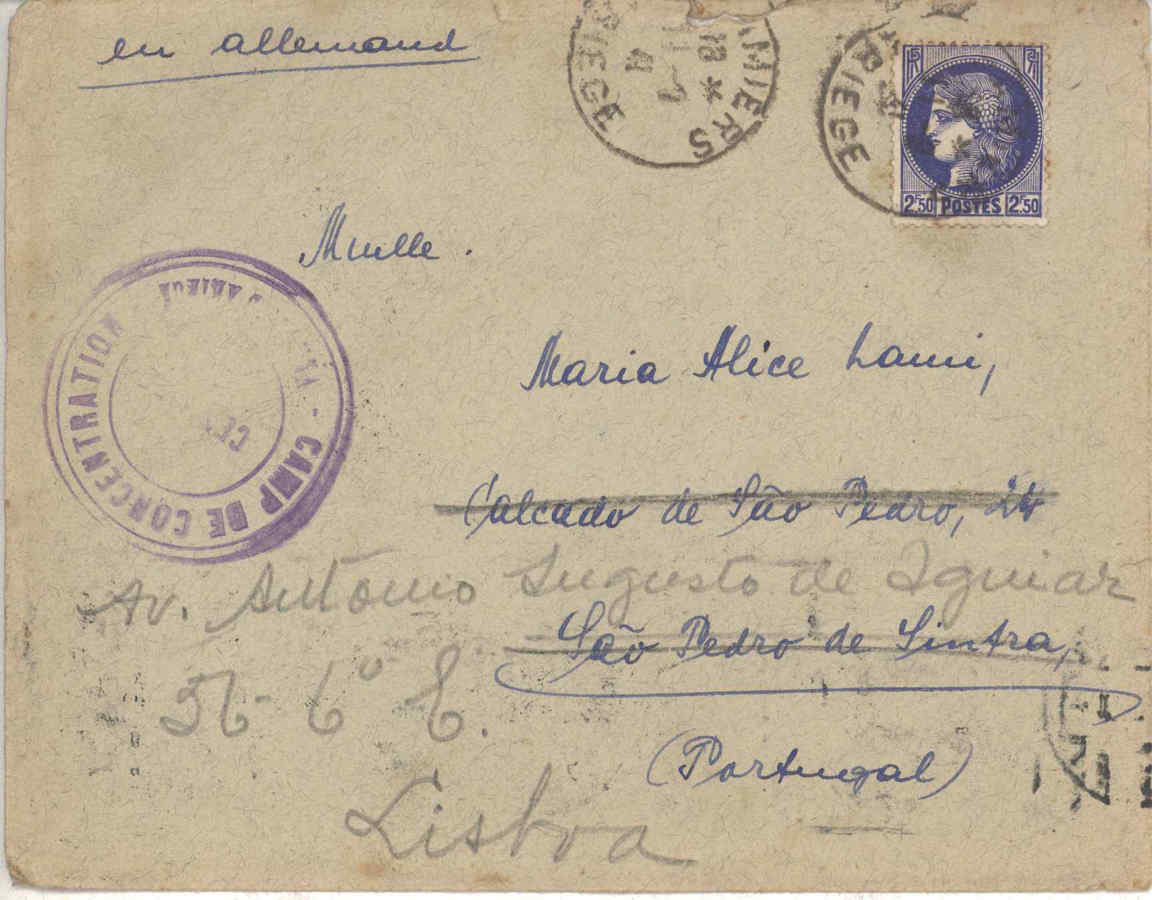 en allemand
PAMIERS
18 *
11-7
41
ARIEGE
RIEGE
2F50 POSTES 2F50
Mmlle.
D'ARIEGE
CAMP DE CONCENTRATION
Maria Alice Lami,
Calcado de São Pedro, 24
Av. Antonio Augusto de Aguiar
São Pedro de Sintra,
56-6º E.
(Portugal)
Lisboa